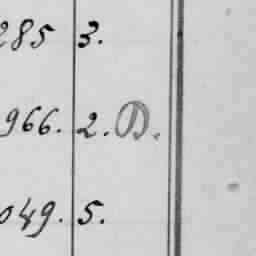 285 3.
966. 2. D.
049. 5.